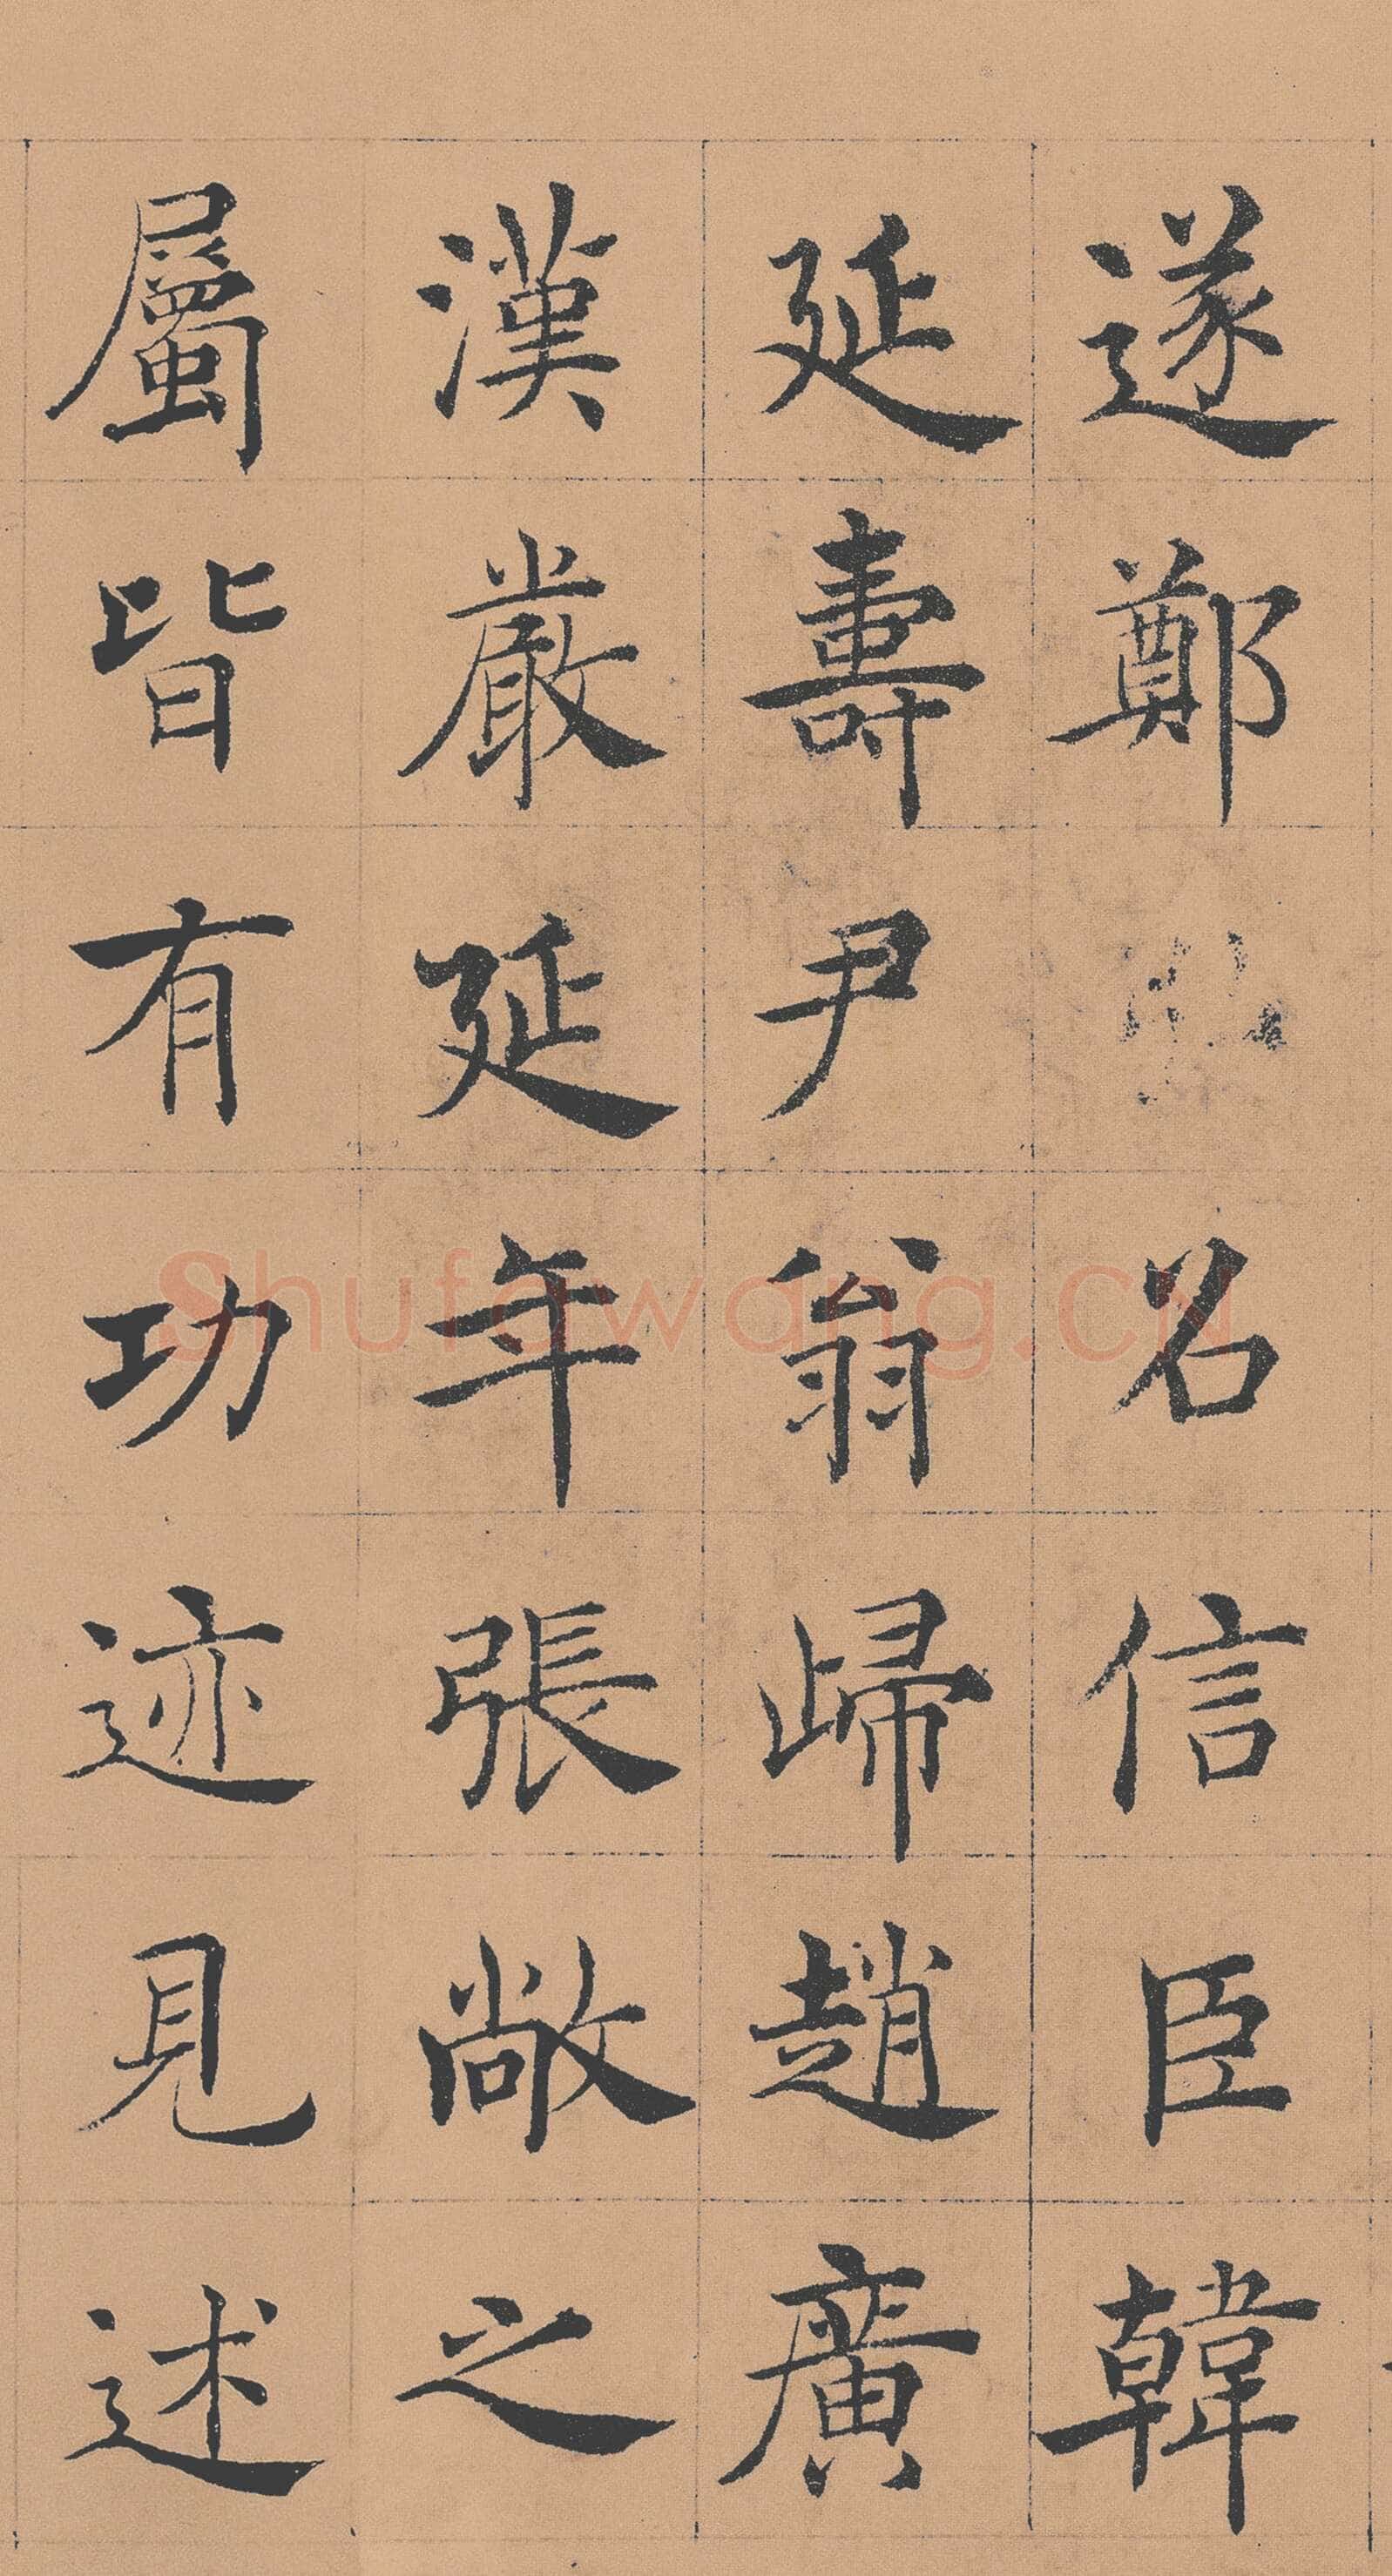 遂鄭召信臣韓
延壽尹翁歸趙廣
漢嚴延年張敞之
屬皆有功迹見述
Shufawang.CN